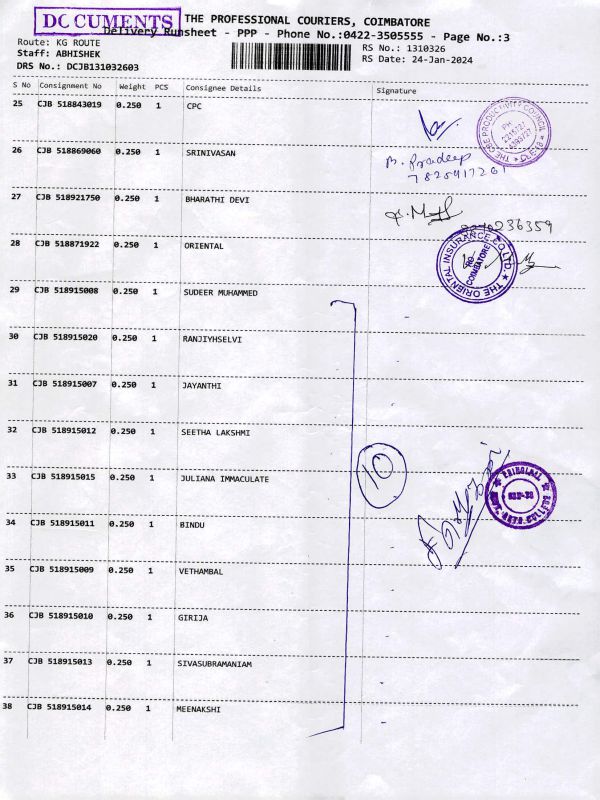 DOCUMENTS
THE PROFESSIONAL COURIERS, COIMBATORE
Delivery Runsheet - PPP - Phone No.:0422-3505555 - Page No.:3
Route: KG ROUTE
Staff: ABHISHEK
DRS No.: DCJB131032603
RS No.: 1310326
RS Date: 24-Jan-2024
S No Consignment No Weight PCS Consignee Details Signature
25 CJB 518843019 0.250 1 CPC
26 CJB 518869060 0.250 1 SRINIVASAN
27 CJB 518921750 0.250 1 BHARATHI DEVI
28 CJB 518871922 0.250 1 ORIENTAL
29 CJB 518915008 0.250 1 SUDEER MUHAMMED
30 CJB 518915020 0.250 1 RANJIYHSELVI
31 CJB 518915007 0.250 1 JAYANTHI
32 CJB 518915012 0.250 1 SEETHA LAKSHMI
33 CJB 518915015 0.250 1 JULIANA IMMACULATE
34 CJB 518915011 0.250 1 BINDU
35 CJB 518915009 0.250 1 VETHAMBAL
36 CJB 518915010 0.250 1 GIRIJA
37 CJB 518915013 0.250 1 SIVASUBRAMANIAM
38 CJB 518915014 0.250 1 MEENAKSHI
PRODUCTIVITY COUNCIL
B. Pradeep
THE ORIENTAL INSURANCE CO. LTD.
RO
COIMBATORE
10
PRINCIPAL
GOVT. ARTS COLLEGE